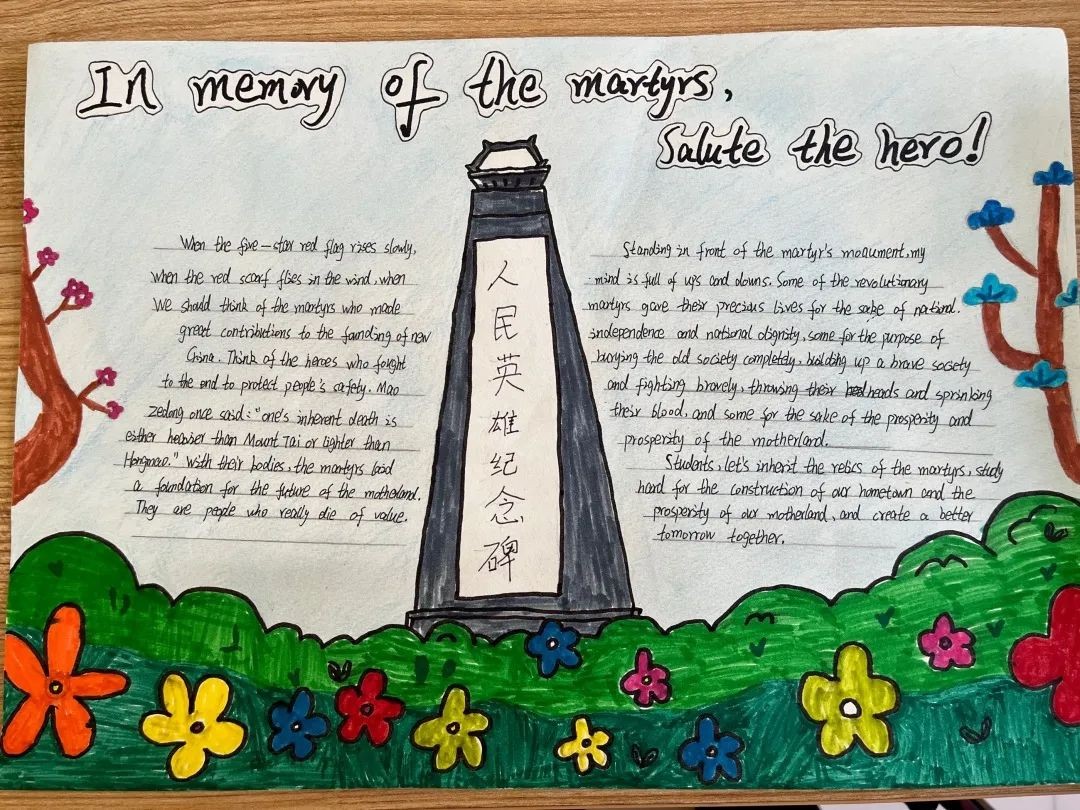 In memory of the martyrs,
Salute the hero!
When the five-star red flag rises slowly,
when the red scarf flies in the wind, when
we should think of the martyrs who made
great contributions to the founding of new
China. Think of the heroes who fought
to the end to protect people's safety. Mao
zedong once said: "one's inherent death is
either heavier than Mount Tai or lighter than
Hongmao." With their bodies, the martyrs laid
a foundation for the future of the motherland.
They are people who really die of value.
人民英雄纪念碑
Standing in front of the martyr's monument, my
mind is full of ups and downs. Some of the revolutionary
martyrs gave their precious lives for the sake of national.
independence and national dignity, some for the purpose of
burying the old society completely, building up a brave society
and fighting bravely, throwing their heads and sprinkling
their blood, and some for the sake of the prosperity and
prosperity of the motherland.
Students, let's inherit the relics of the martyrs, study
hard for the construction of our hometown and the
prosperity of our motherland, and create a better
tomorrow together.